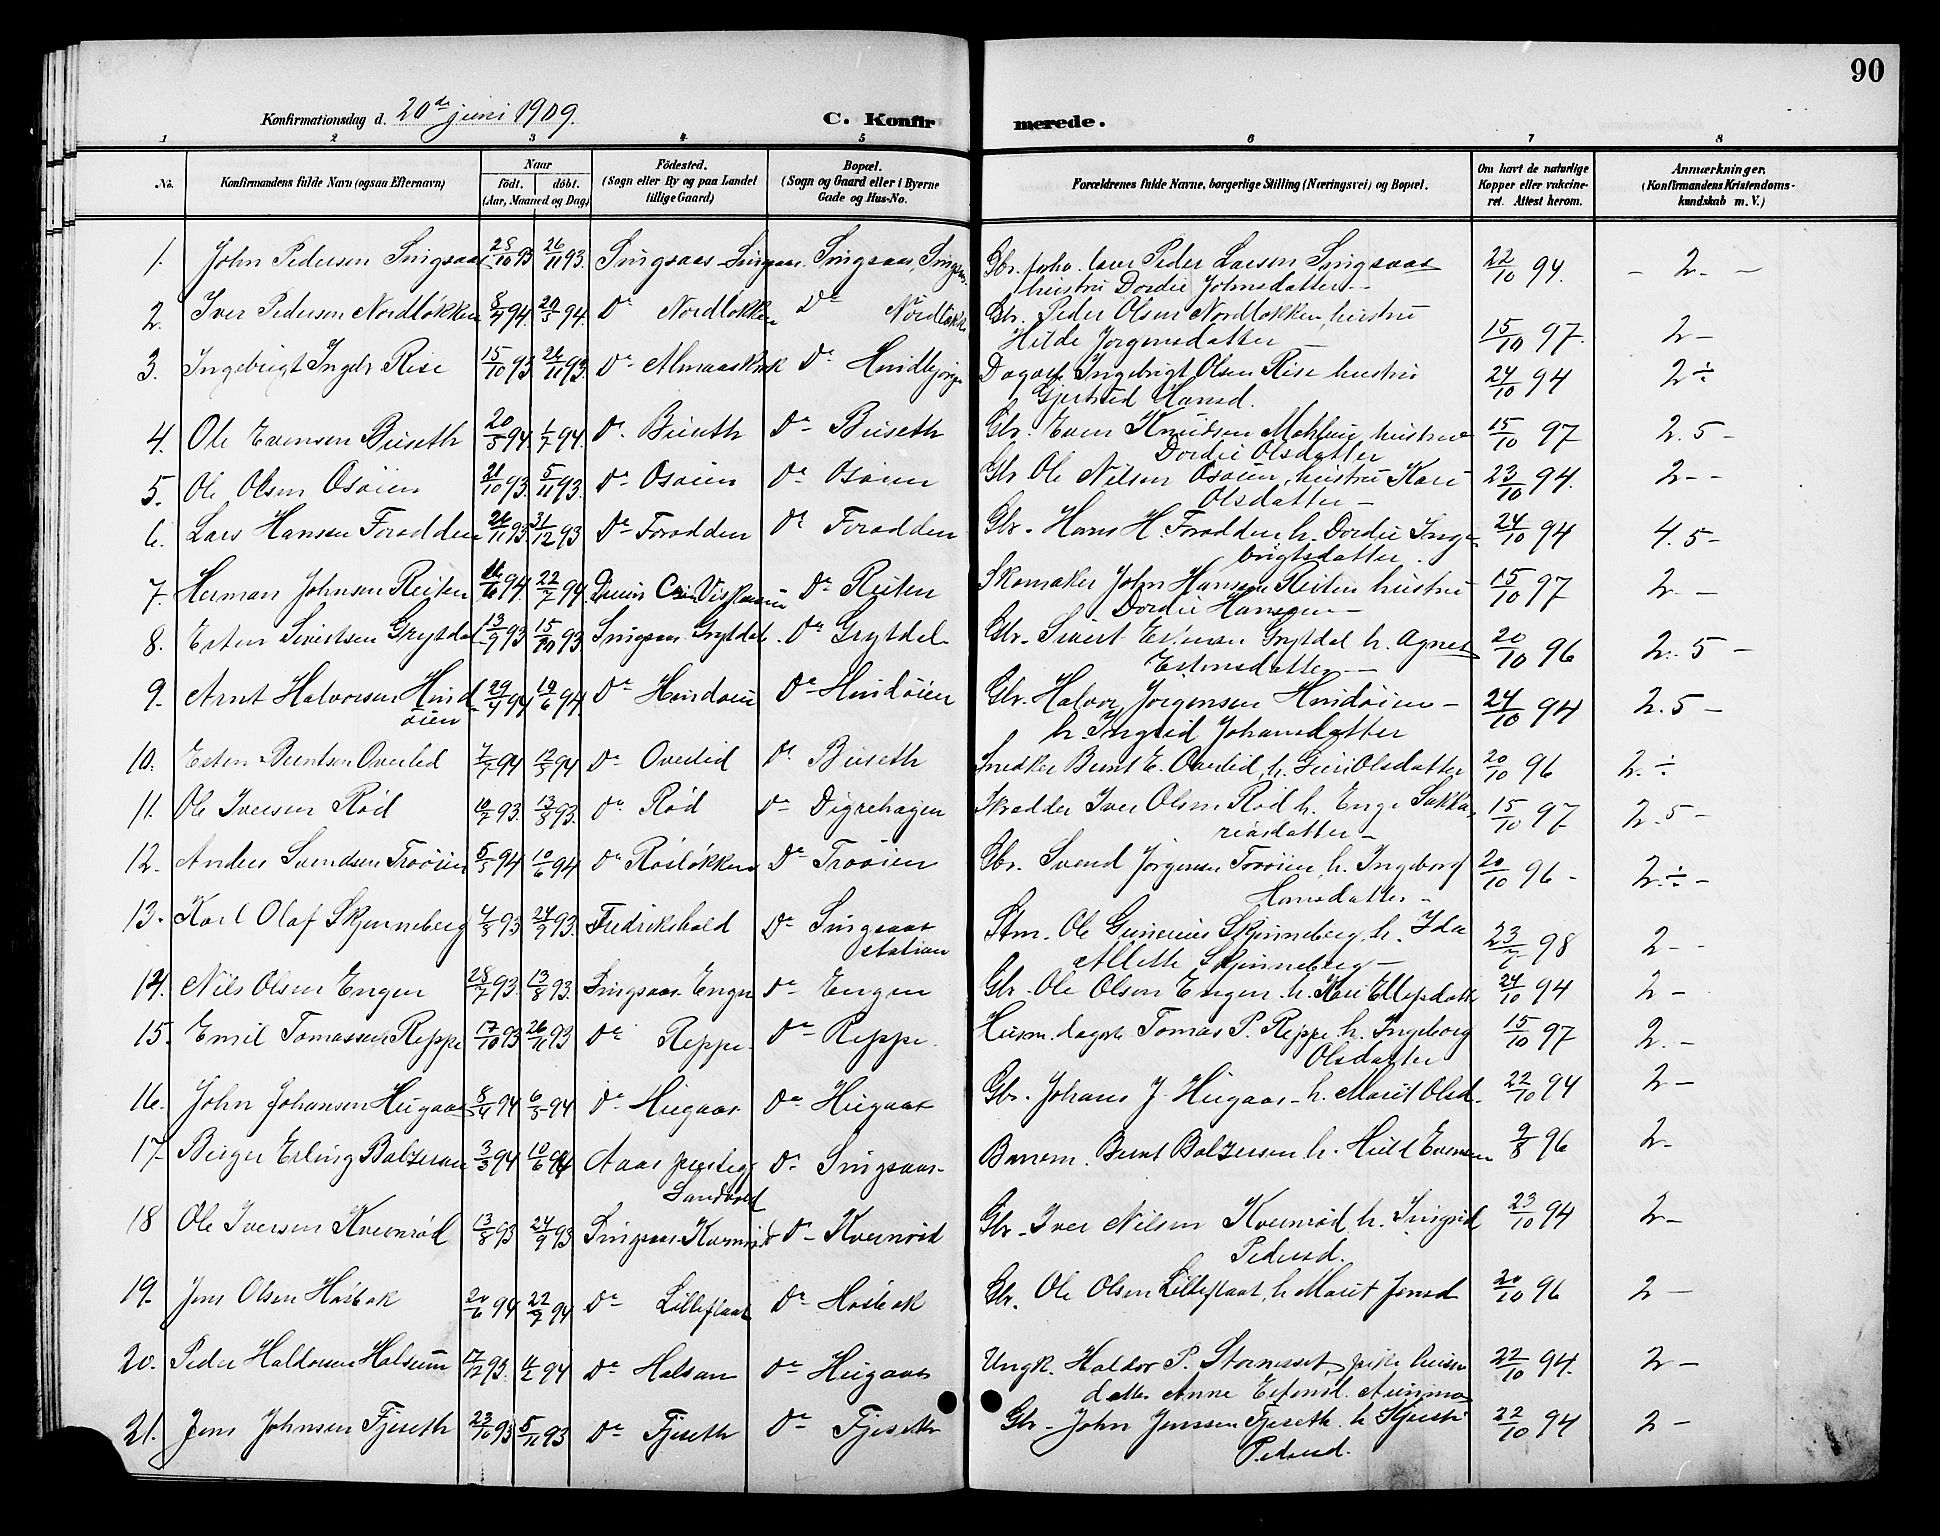 90
Konfirmationsdag d. 20de juni 1909.
C. Konfirmerede.
1 2 3 4 5 6 7 8
No. Konfirmandens fulde Navn (ogsaa Efternavn)
Naar født. døbt. (Aar, Maaned og Dag)
Fødested. (Sogn eller By og paa Landet tillige Gaard)
Bopæl. (Sogn og Gaard eller i Byerne Gade og Hus-No.
Forældrenes fulde Navne, borgerlige Stilling (Næringsvei) og Bopæl.
Om havt de naturlige Kopper eller vaccineret. Attest herom.
Anmærkninger. (Konfirmandens Kristendomskundskab m. V.)
1. John Pedersen Singsaas 28/10 93 26/11 93. Singsaas Singsaas. Singsaas, Singsaas Gbr. Peder Larsen Singsaas 22/10 94. - 2. -
hustru Dordie Johnsdatter -
2. Iver Pedersen Nordløkken 8/4 94. 20/5 94. Do Nordløkken Do Nordløkk Gbr. Peder Olsen Nordløkken, hustru
Hilde Jørgensdatter - 15/10 97. 2 -
3. Ingebrigt Ingebr Rise 15/10 93 26/11 93. Do Almaasbak Do Hindbjørgen Dagarb. Ingebrigt Olsen Rise hustru 24/10 94 2 ÷
Gjertrud Hansd.
4. Ole Evensen Buseth 20/5 94. 1/7 94. Do. Buseth Do Buseth Gbr. Even Knudsen hustru 15/10 97 2.5 -
Dordie Olsdatter
5. Ole Olsen Osøien 21/10 93. 5/11 93. Do Osøien Do Osøien Gbr Ole Nilsen Osøien, hustru Kari 23/10 94. 2 - -
Olsdatter -
6. Lars Hansen Forodden 26/11 93 31/12 93 Do Forodden Do Forodden Gbr. Hans H. Forodden h. Dordie Inge- 24/10 94 4.5 -
brigtsdatter.
7. Herman Johnsen Reiten 94. 22/7 94. - Do Reiten Skomaker John Hansen Reiten hustru 15/10 97 2 -
Dordie Hansen -
8. Esten Sivertsen Grytdal 13/9 93 15/10 93 Singsaas Grytdal. Do Grytdal Gbr. Sivert Estensen Grytdal h. Agnes 20/10 96 2. 5 -
Estensdatter -
9. Arnt Halvorsen Hind- 29/4 94 10/6 94. Do Hindøien Do Hindøien Gbr. Halvor Jørgensen Hindøien - 24/10 94 2.5 -
øien h Ingrid Johansdatter
10. Esten Berntsen Overlid 7/7 94 94 Do Overlid Do Buseth Snedker Bernt E. Overlid, h. Guri Olsdatter 20/10 96 2. ÷
11. Ole Iversen Rød 10/7 93. 13/8 93. Do Rød Do Digrehagen Skrædder Iver Olsen Rød h. Inge Sakka- 15/10 97 2.5 -
riasdatter -
12. Anders Svendsen Troøien 5/5 94 10/6 94 Do Røsløkken Do Troøien Gbr. Svend Jørgensen Troøien h. Ingeborg 20/10 96 - 2. ÷ -
Hansdatter -
13. Karl Olaf Skjønneberg 4/8 93 24/9 93. Fredrikshald Do Singsaas Stm. Ole Gunerius Skjønneberg h. Ida 23/6 98 2 - -
station Allette Skjønneberg -
14. Nils Olsen Engen 28/7 93. 13/8 93. Singsaas Engen Do Engen Gbr. Ole Olsen Engen h. Kari Ellefsdatt 24/10 94 2 -
15. Emil Tomassen Reppe 17/10 93 26/11 93 Do Reppe. Do Reppe. Husm. dagarb. Tomas P. Reppe h. Ingeborg 15/10 97 2. -
Olsdatter
16. John Johansen Haugaas 8/4 94 6/5 94 Do Haugaas Do Haugaas Gbr. Johans J. Haugaas - h. Marit Olsd. 22/10 94 2 -
17. Birger Erling Balzersen 3/3 94 10/6 94 Aaas præstegj. Do. Singsaas. Banem. Bernt Balzersen h. Evensen 9/8 96 2 -
Sandvold
18 Ole Iversen Kvernrød 13/8 93 24/9 93 Singsaas Kvernrød Do - Kvernrød Gbr. Iver Nilsen Kvernrød h. Ingrid 23/10 94 2 -
Pedersd.
19. Jens Olsen Hosbak 20/6 94 22/7 94 Do Lilleflaat Do Hosbak Gbr. Ole Olsen Lilleflaat, h Marit Jensd 20/10 96 2 -
20. Peder Haldorsen Halsan 17/12 93. 94 Do Halsan Do Haugaas Ungk. Haldor P. Stormesset, pike 22/10 94. 2 -
datter Anne Estensd. Aunmo
21. Jens Johnsen Fjeseth 23/10 93 5/11 93 Do Fjeseth Do Fjeseth Gbr - John Jenssen Fjeseth h 22/10 94 2 -
Pedersd.